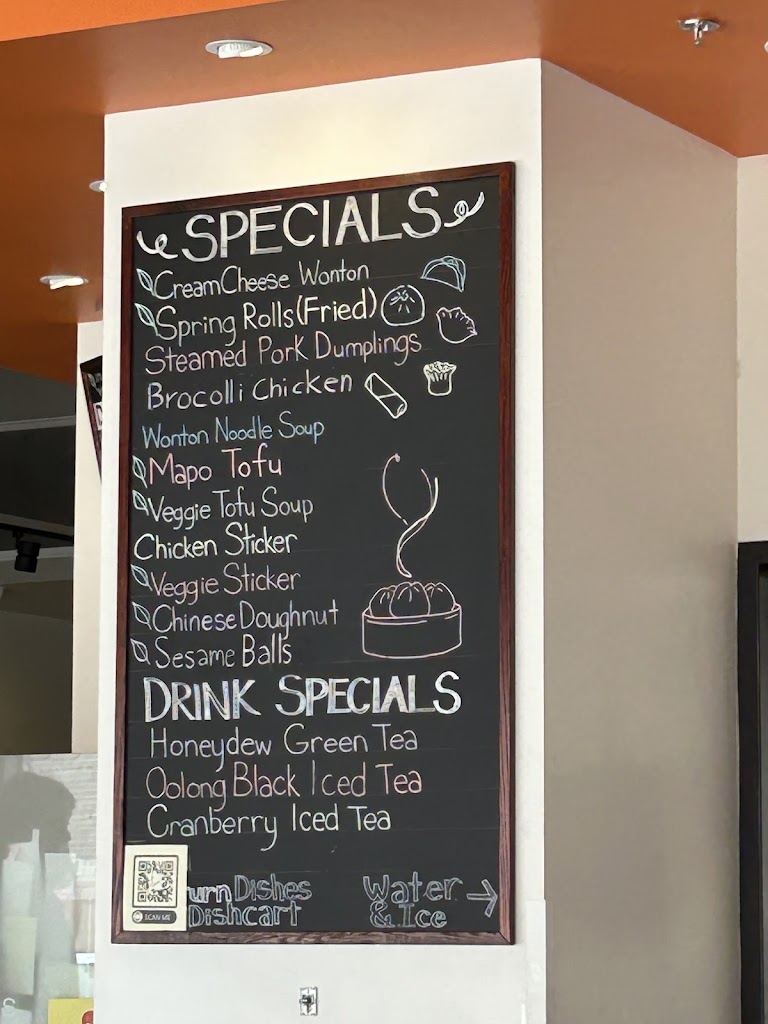 SPECIALS
CreamCheese Wonton
Spring Rolls (Fried)
Steamed Pork Dumplings
Brocolli Chicken
Wonton Noodle Soup
Mapo Tofu
Veggie Tofu Soup
Chicken Sticker
Veggie Sticker
Chinese Doughnut
Sesame Balls
DRINK SPECIALS
Honeydew Green Tea
Oolong Black Iced Tea
Cranberry Iced Tea
urn Dishes
Dishcart
Water →
& Ice
SCAN ME